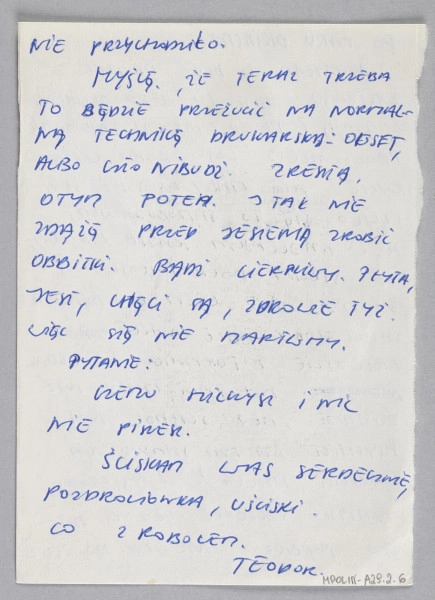 NIE PRZYCHODZIŁO.
MYŚLĘ, ŻE TERAZ TRZEBA
TO BĘDZIE PRZEŻUCIĆ NA NORMAL-
NĄ TECHNIKĘ DRUKARSKĄ - OFSET,
ALBO CÓŚ NIBUDŹ. ZRESZTĄ,
OTYM POTEM. I TAK NIE
ZDĄŻĘ PRZED JESIENIĄ ZROBIĆ
ODBITKI. BĄDŹ CIERPLIWY. PŁYTA,
JEST, CHĘCI SĄ, ZDROWIE TYŻ.
WIĘC SIĘ NIE MARTWMY.
PYTANIE:
CZEMU MILCZYSZ I NIC
NIE PISZESZ.
ŚCISKAM WAS SERDECZNIE,
POZDROWIONKA, UŚCISKI.
CO Z ROBOTEM.
TEODOR.
MPOLIII-A29.2.6